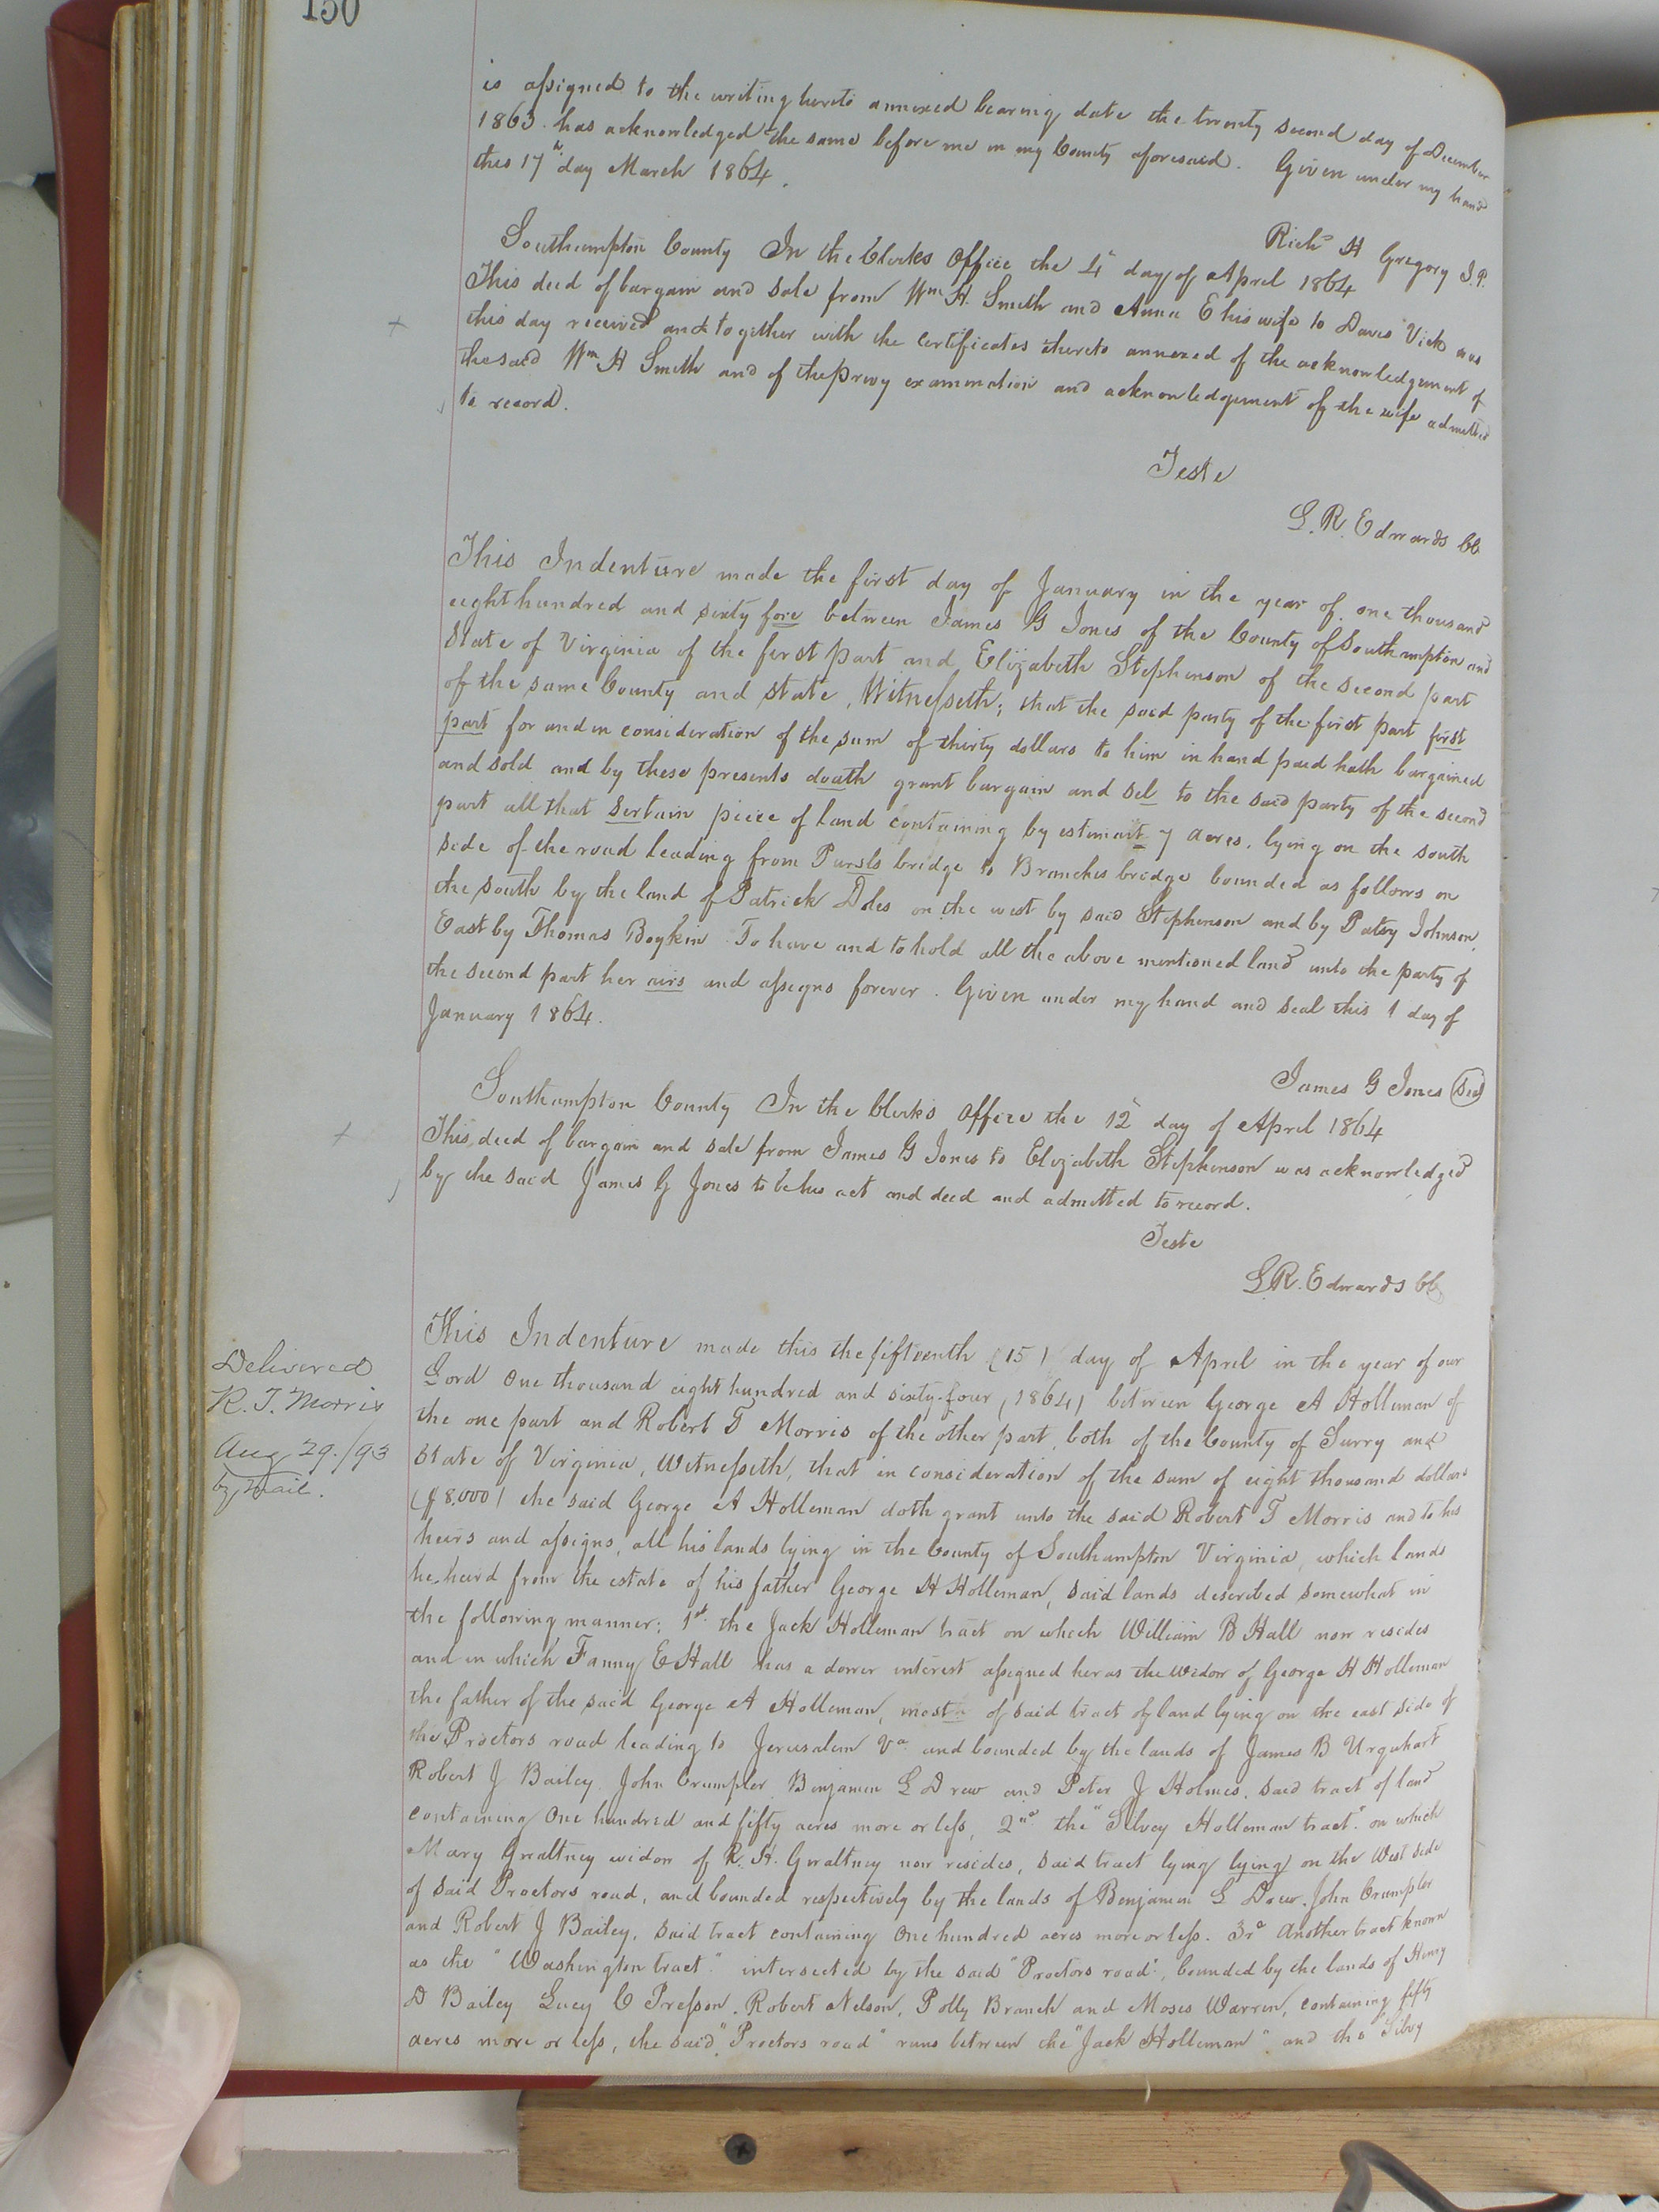 150
is assigned to the writing hereto annexed bearing date the twenty second day of December
1863 has acknowledged the same before me in my County aforesaid. Given under my hand
this 17th day March 1864.
Richd H Gregory J.P.
Southampton County In the Clerks Office the 4th day of April 1864
This deed of bargain and sale from Wm H. Smith and Anna E his wife to Davis Vick was
this day received and together with the certificates thereto annexed of the acknowledgement of
the said Wm H Smith and of the privy examination and acknowledgement of the wife admitted
to record.
Teste
L. R. Edwards CC
This Indenture made the first day of January in the year of one thousand
eight hundred and sixty fore between James G Jones of the County of Southampton and
State of Virginia of the first part and Elizabeth Stephenson of the second part
of the same County and state, Witnesseth; that the said party of the first part first
part for and in consideration of the sum of thirty dollars to him in hand paid hath bargained
and sold and by these presents doath grant bargain and sel to the said party of the second
part all that sertain piece of land containing by estimait 7 acres. lying on the south
side of the road leading from Pursls bridge to Branches bridge bounded as follows on
the south by the land of Patrick Doles on the west by said Stephenson and by Patsy Johnson.
East by Thomas Boykin To have and to hold all the above mentioned land unto the party of
the second part her airs and assigns forever. Given under my hand and seal this 1 day of
January 1864.
James G Jones Seal
Southampton County In the Clerks Office the 12th day of April 1864
This deed of bargain and sale from James G Jones to Elizabeth Stephenson was acknowledged
by the said James G Jones to be his act and deed and admitted to record.
Teste
L. R. Edwards CC
Delivered
R. T. Morris
Aug 29./93
by mail.
This Indenture made this the fifteenth (15) day of April in the year of our
Lord One thousand eight hundred and sixty-four (1864) between George A Holleman of
the one part and Robert T Morris of the other part, both of the County of Surry and
State of Virginia, Witnesseth, that in consideration of the sum of eight thousand dollars
($8,000) the said George A Holleman doth grant unto the said Robert T Morris and to his
heirs and assigns, all his lands lying in the County of Southampton Virginia, which lands
he heird from the estate of his father George H Holleman, said lands described somewhat in
the following manner; 1st the Jack Holleman tract on which William B Hall now resides
and in which Fanny E Hall has a dower interest assigned her as the widow of George H Holleman
the father of the said George A Holleman, most of said tract of land lying on the east side of
the Proctors road leading to Jerusalem Va and bounded by the lands of James B Urquhart
Robert J Bailey, John Crumpler Benjamin L Drew and Peter J Holmes, said tract of land
containing One hundred and fifty acres more or less, 2nd the "Silvey Holleman tract" on which
Mary Gwaltney widow of R. H. Gwaltney now resides, said tract lying lying on the West side
of said Proctors road, and bounded respectively by the lands of Benjamin L Drew. John Crumpler
and Robert J Bailey, said tract containing One hundred acres more or less. 3rd Another tract known
as the "Washington tract" intersected by the said "Proctors road", bounded by the lands of Henry
D Bailey Lucy C Presson, Robert Nelson, Polly Branch and Moses Warren, containing fifty
acres more or less, the said "Proctors road" runs between the "Jack Holleman" and the "Silvy